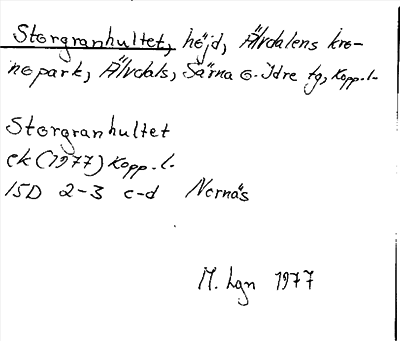 Storgranhultet, höjd, Älvdalens kro-
nopark, Älvdals, Särna o. Idre tg, Kopp.l.
Storgranhultet
ek (1977) Kopp.l.
15D 2-3 c-d Nornäs
M. Lgn 1977